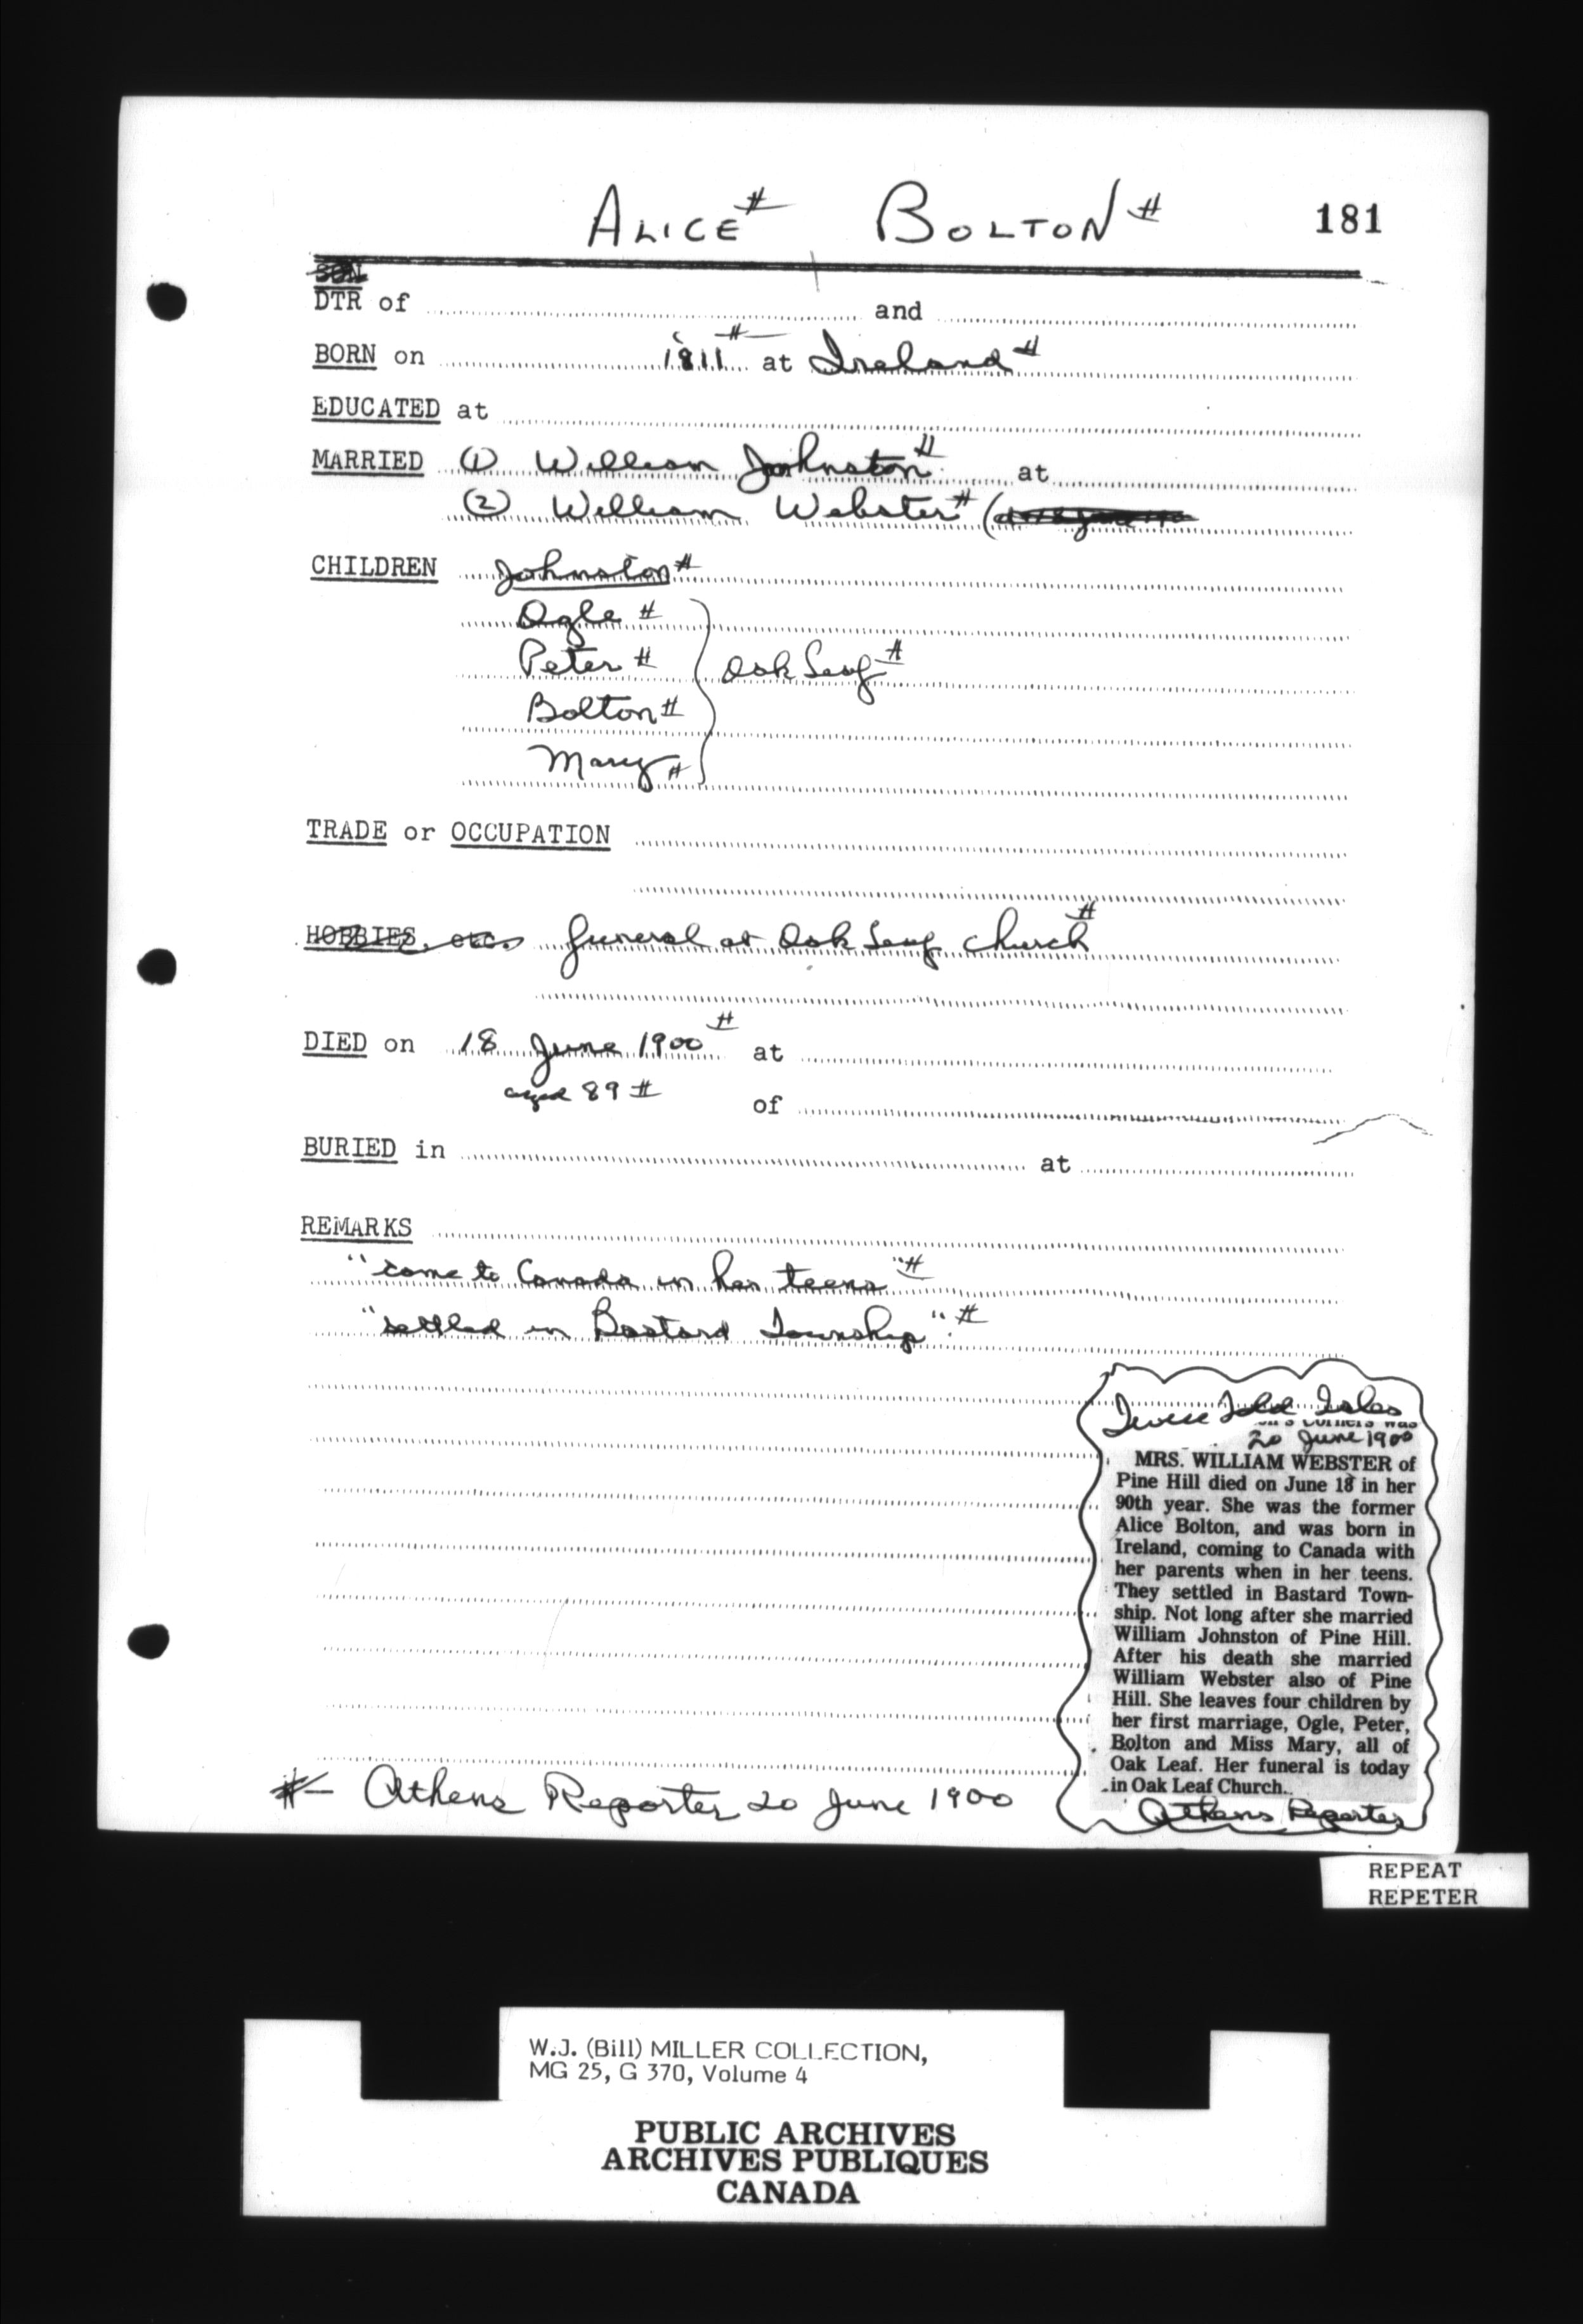 ALICE # BOLTON # 181
SON
DTR of and
BORN on 1811 # at Ireland #
EDUCATED at
MARRIED (1) William Johnston # at
(2) William Webster # (
CHILDREN Johnston #
Ogle #
Peter # Oak Leaf #
Bolton #
Mary #
TRADE or OCCUPATION
HOBBIES, etc. funeral at Oak Leaf church #
DIED on 18 June 1900 # at
aged 89 # of
BURIED in at
REMARKS
"came to Canada in her teens" #
"settled in Bastard Township". #
Twice Told Tales
Corners was
20 June 1900
MRS. WILLIAM WEBSTER of
Pine Hill died on June 18 in her
90th year. She was the former
Alice Bolton, and was born in
Ireland, coming to Canada with
her parents when in her teens.
They settled in Bastard Town-
ship. Not long after she married
William Johnston of Pine Hill.
After his death she married
William Webster also of Pine
Hill. She leaves four children by
her first marriage, Ogle, Peter,
Bolton and Miss Mary, all of
Oak Leaf. Her funeral is today
in Oak Leaf Church.
Athens Reporter
# - Athens Reporter 20 June 1900
REPEAT
REPETER
W.J. (Bill) MILLER COLLECTION,
MG 25, G 370, Volume 4
PUBLIC ARCHIVES
ARCHIVES PUBLIQUES
CANADA